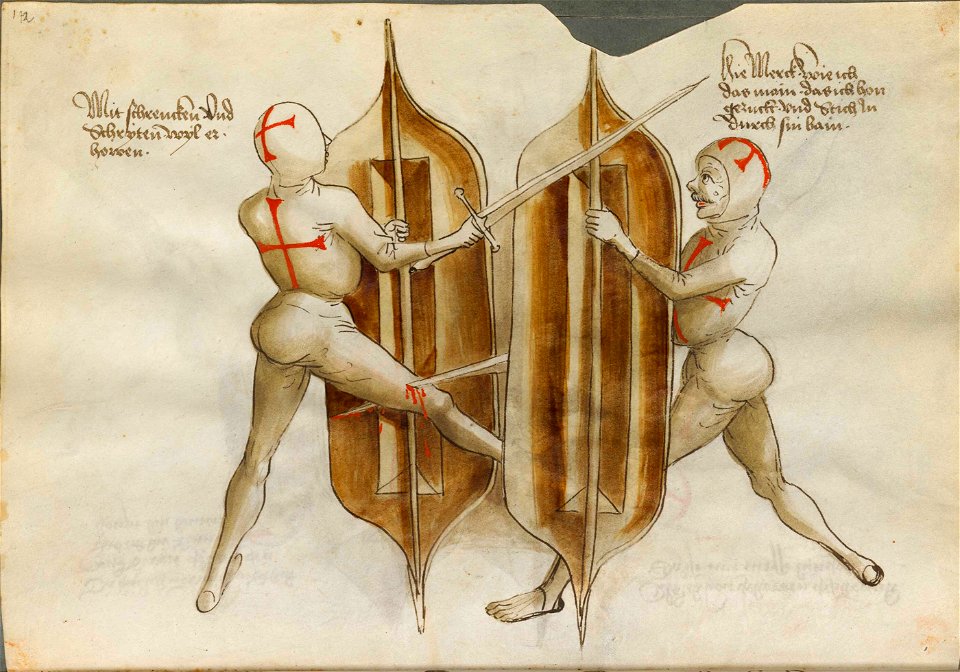 172
Mit schrencken Vnd
Schroten wyl er
howen.
Hie Merck wie ich
das main das ich hon
geruckt Vnd Stich In
durch sin bain.